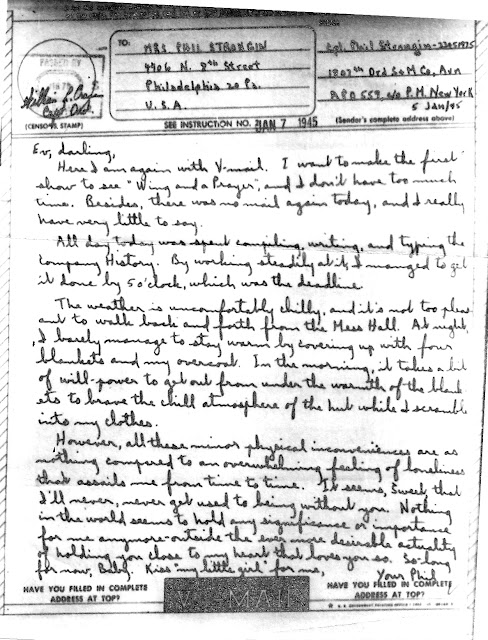 PASSED BY
William G. Craig
Capt. Ord.
(CENSOR'S STAMP)
TO:
MRS PHIL STRONGIN
4906 N. 8th Street
Philadelphia 20 Pa.
U.S.A.
SEE INSTRUCTION NO. 2
JAN 7 1945
Cpl. Phil Strongin-
1802nd Ord S&M Co, Avn
APO 559, c/o P.M. New York
5 Jan/45
(Sender's complete address above)
Ev, darling,
Here I am again with V-mail. I want to make the first
show to see "Wing and a Prayer", and I don't have too much
time. Besides, there was no mail again today, and I really
have very little to say.
All day today was spent compiling, writing, and typing the
Company History. By working steadily at it, I managed to get
it done by 5 o'clock, which was the deadline
The weather is uncomfortably chilly, and it's not too pleas
ant to walk back and forth from the Mess Hall. At night,
I barely manage to stay warm by covering up with four
blankets and my overcoat. In the morning, it takes a bit
of will-power to get out from under the warmth of the blank
ets to brave the chill atmosphere of the hut while I scramble
into my clothes.
However, all these minor physical inconveniences are as
nothing compared to an overwhelming feeling of loneliness
that assails me from time to time. It seems, Sweet, that
I'll never, never get used to being without you. Nothing
in the world seems to hold any significance or importance
for me anymore-outside the ever more desirable actuality
of holding you close to my heart that loves you so. So-long
for now, Baby. Kiss "my little girl" for me,
Your Phil
HAVE YOU FILLED IN COMPLETE
ADDRESS AT TOP?
V-MAIL
HAVE YOU FILLED IN COMPLETE
ADDRESS AT TOP?